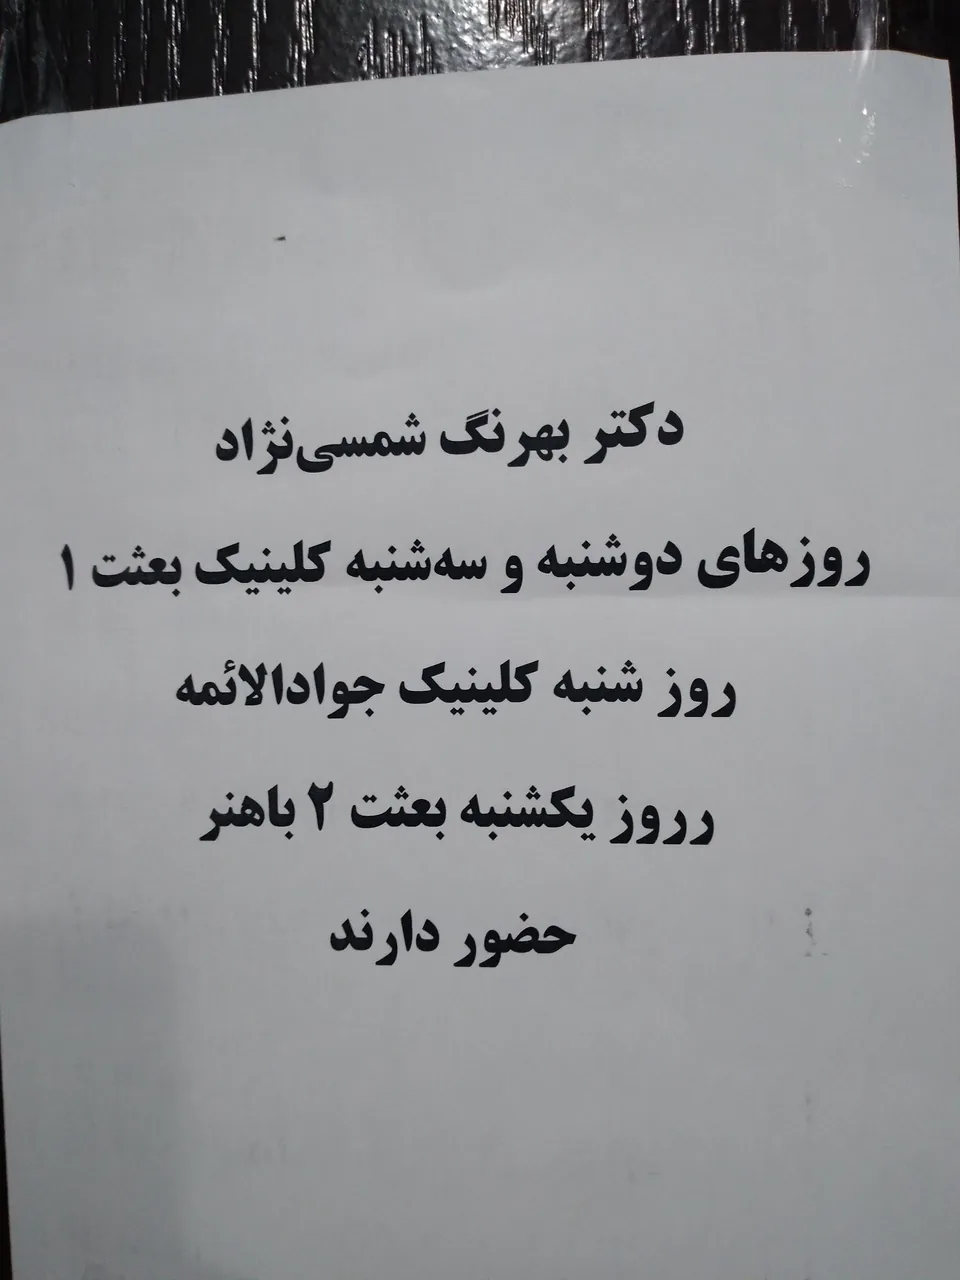 دکتر بهرنگ شمسی‌نژاد
روزهای دوشنبه و سه‌شنبه کلینیک بعثت ۱
روز شنبه کلینیک جوادالائمه
رروز یکشنبه بعثت ۲ باهنر
حضور دارند